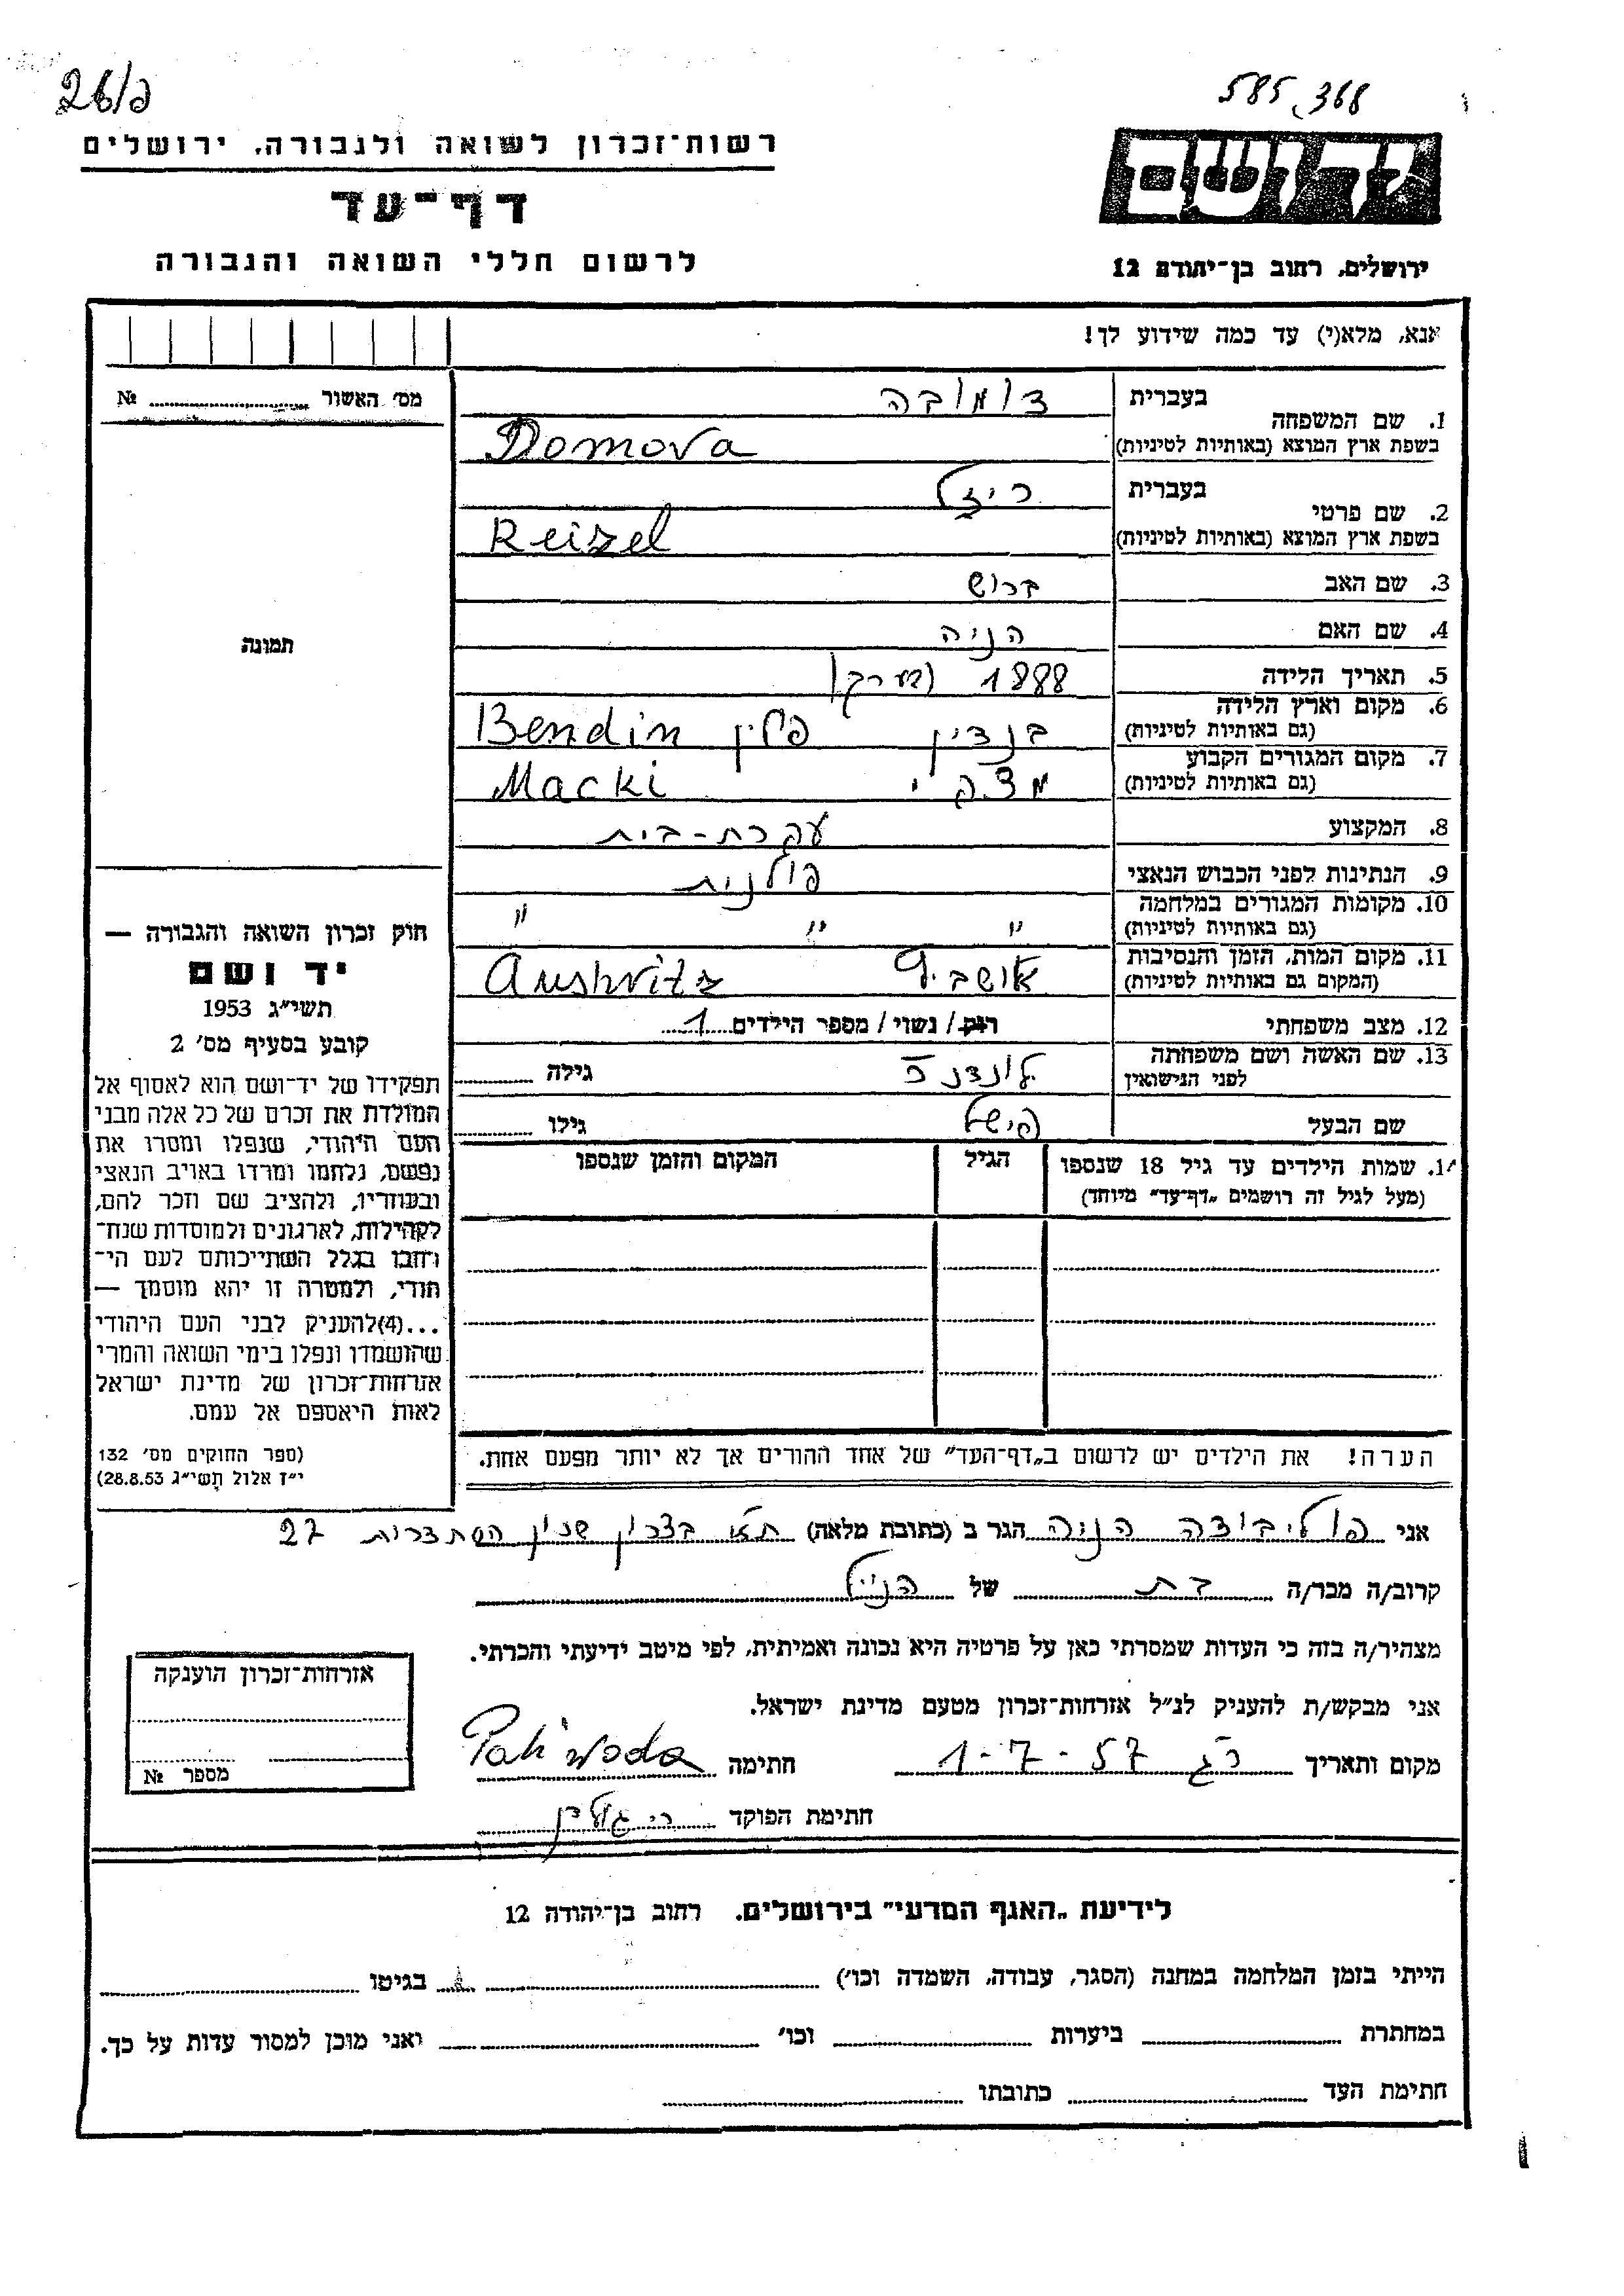 26/ב
585,368
רשות־זכרון לשואה ולגבורה, ירושלים
דף־עד
לרשום חללי השואה והגבורה
יד ושם
ירושלים, רחוב בן־יהודה 12
אנא, מלא(י) עד כמה שידוע לך!
מס׳ האשור № 
תמונה
1. שם המשפחה
בעברית דומובה
בשפת ארץ המוצא (באותיות לטיניות) Domova
2. שם פרטי
בעברית ריזל
בשפת ארץ המוצא (באותיות לטיניות) Reizel
3. שם האב ברוש
4. שם האם הניה
5. תאריך הלידה 1888 (בערך)
6. מקום וארץ הלידה (גם באותיות לטיניות) בנדין פולין Bendin
7. מקום המגורים הקבוע (גם באותיות לטיניות) מצקי Macki
8. המקצוע עקרת-בית
9. הנתינות לפני הכבוש הנאצי פולנית
10. מקומות המגורים במלחמה (גם באותיות לטיניות) " " "
11. מקום המות, הזמן והנסיבות (המקום גם באותיות לטיניות) אושביץ Aushvitz
12. מצב משפחתי רוק/ נשוי/ מספר הילדים 1
13. שם האשה ושם משפחתה לפני הנישואין לונדנר גילה
שם הבעל פישל גילו
14. שמות הילדים עד גיל 18 שנספו
(מעל לגיל זה רושמים „דף־עד״ מיוחד)
הגיל
המקום והזמן שנספו
הערה! את הילדים יש לרשום ב„דף־העד״ של אחד ההורים אך לא יותר מפעם אחת.
חוק זכרון השואה והגבורה —
יד ושם
תשי״ג 1953
קובע בסעיף מס׳ 2
תפקידו של יד־ושם הוא לאסוף אל
המולדת את זכרם של כל אלה מבני
העם היהודי, שנפלו ומסרו את
נפשם, נלחמו ומרדו באויב הנאצי
ובעוזריו, ולהציב שם וזכר להם,
לקהילות, לארגונים ולמוסדות שנח־
רחבו בגלל השתייכותם לעם הי־
הודי, ולמטרה זו יהא מוסמך —
...(4)להעניק לבני העם היהודי
שהושמדו ונפלו בימי השואה והמרי
אזרחות־זכרון של מדינת ישראל
לאות היאספם אל עמם.
(ספר החוקים מס׳ 132
י״ז אלול תשי״ג 28.8.53)
אני פוליבודה הניה הגר ב (כתובת מלאה) ת״א בצרון שכון הסתדרות 27
קרוב/ה מכר/ה בת של הנ״ל
מצהיר/ה בזה כי העדות שמסרתי כאן על פרטיה היא נכונה ואמיתית, לפי מיטב ידיעתי והכרתי.
אני מבקש/ת להעניק לנ״ל אזרחות־זכרון מטעם מדינת ישראל.
מקום ותאריך ר״ג 1-7-57 חתימה
חתימת הפוקד
אזרחות־זכרון הוענקה
מספר №
לידיעת „האגף המדעי״ בירושלים. רחוב בן־יהודה 12
הייתי בזמן המלחמה במחנה (הסגר, עבודה, השמדה וכו׳) בגיטו
במחתרת ביערות וכו׳ ואני מוכן למסור עדות על כך.
חתימת העד כתובתו